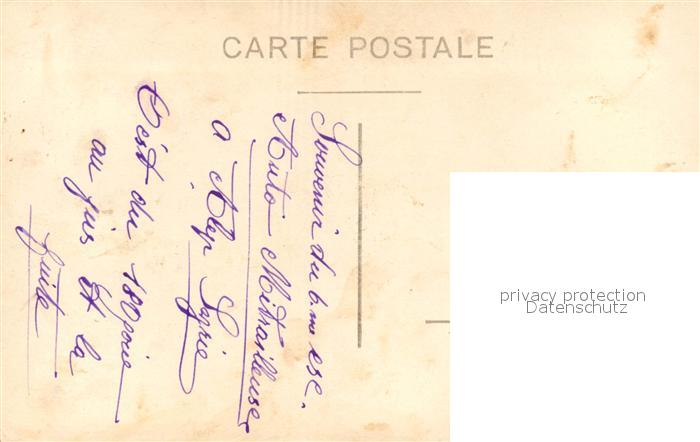 CARTE POSTALE
Souvenir du 6.me esc.
Auto Mitrailleuse
a Alep Syrie
C'est du 180 poie
au jus Et la
fuite
privacy protection
Datenschutz